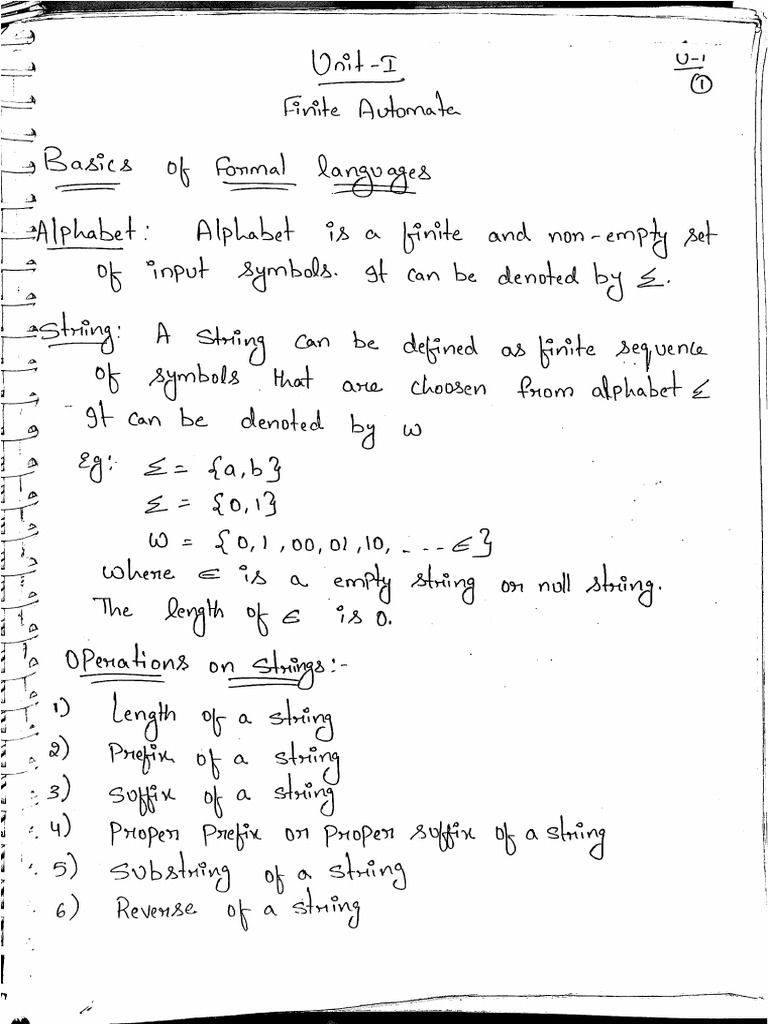 Unit-I
U-1
1
Finite Automata
Basics of Formal languages
Alphabet: Alphabet is a finite and non-empty set
of input symbols. It can be denoted by Σ.
String: A string can be defined as finite sequence
of symbols that are choosen from alphabet Σ
It can be denoted by ω
Eg: Σ = {a,b}
Σ = {0,1}
ω = {0,1,00,01,10, ... ∈}
where ∈ is a empty string or null string.
The length of ∈ is 0.
Operations on strings:-
1) Length of a string
2) Prefix of a string
3) Suffix of a string
4) Proper prefix or proper suffix of a string
5) Substring of a string
6) Reverse of a string